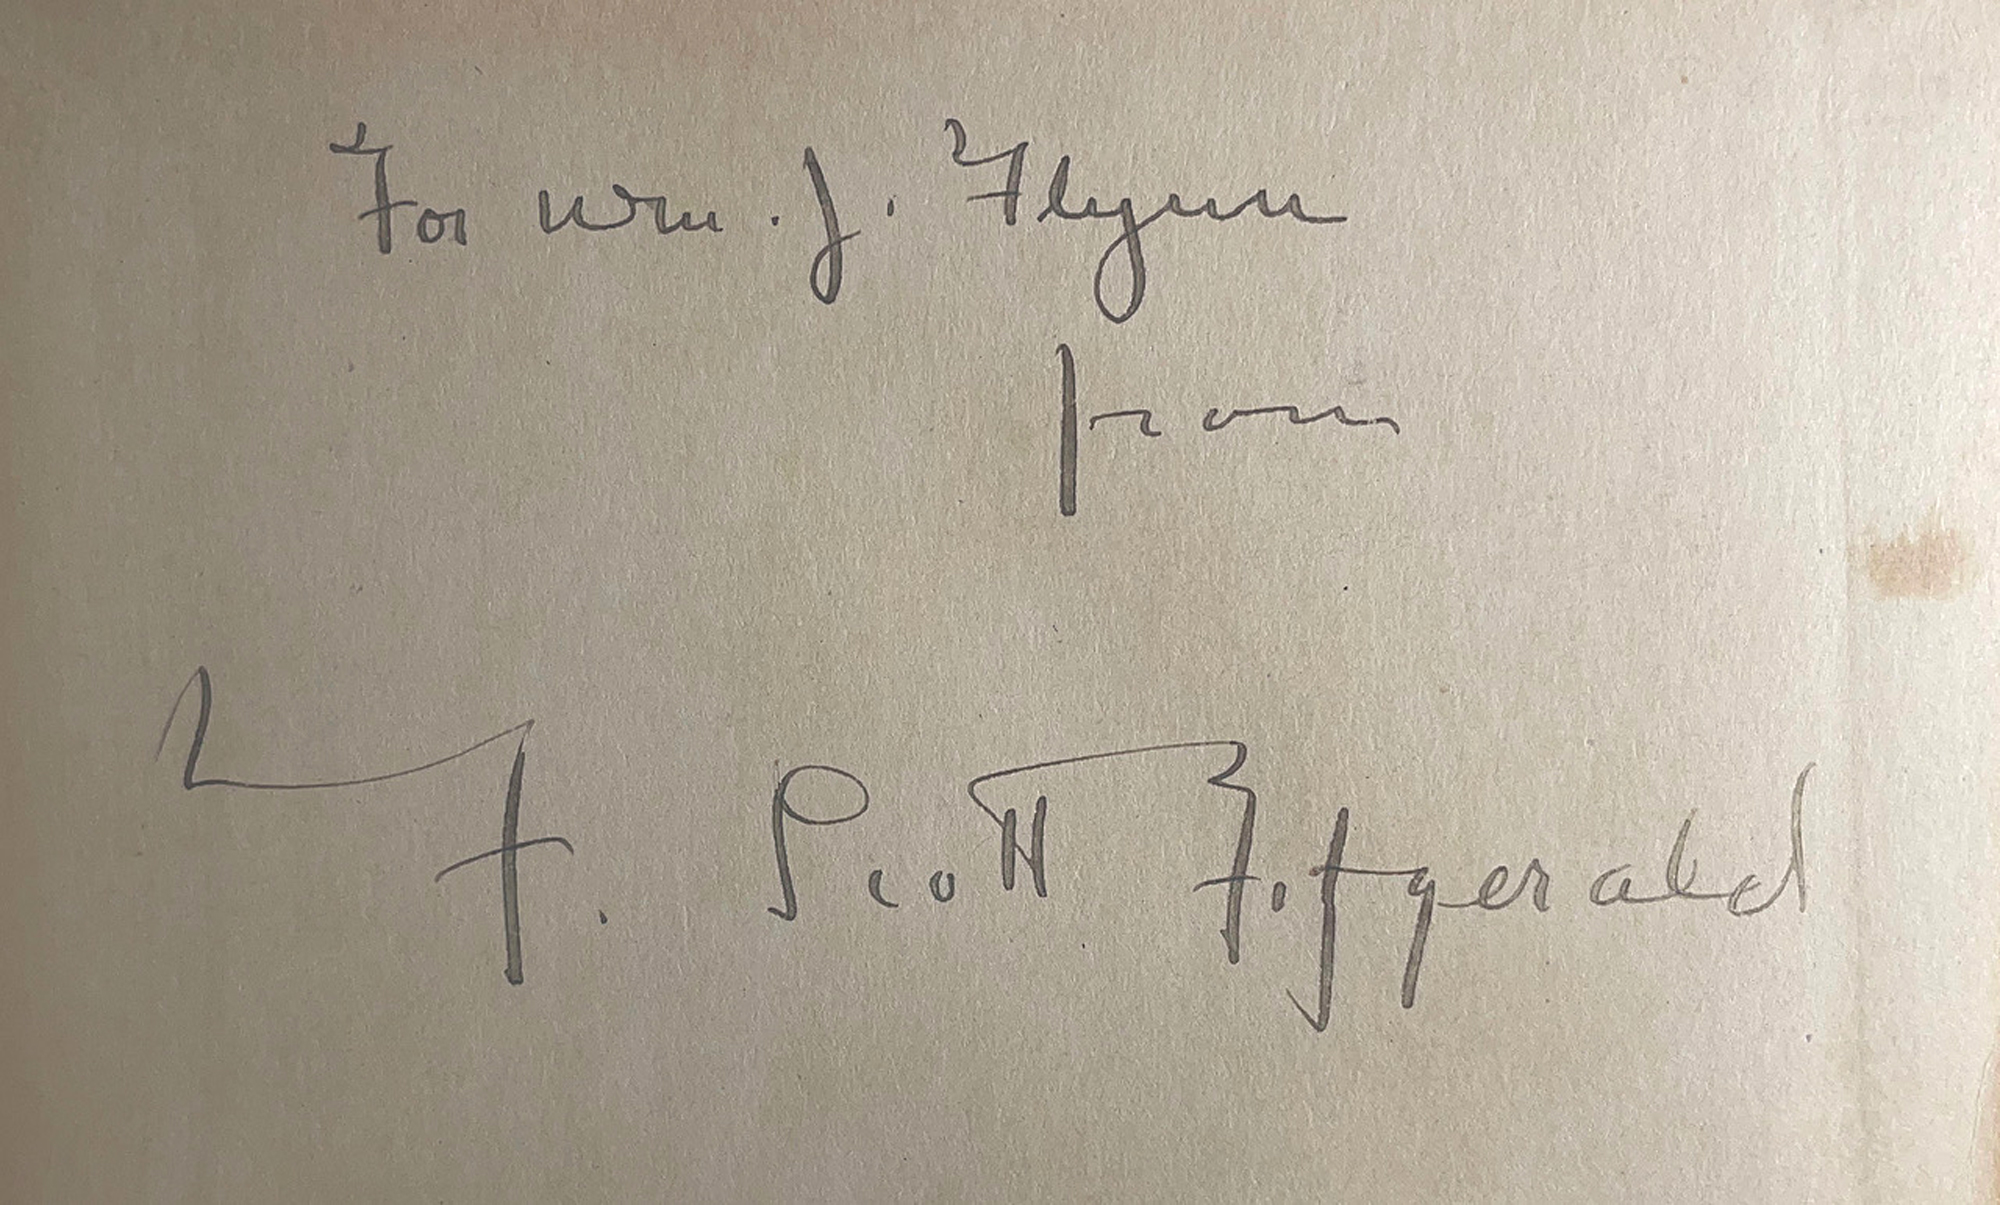 For Wm. J. Flynn
from
F. Scott Fitzgerald